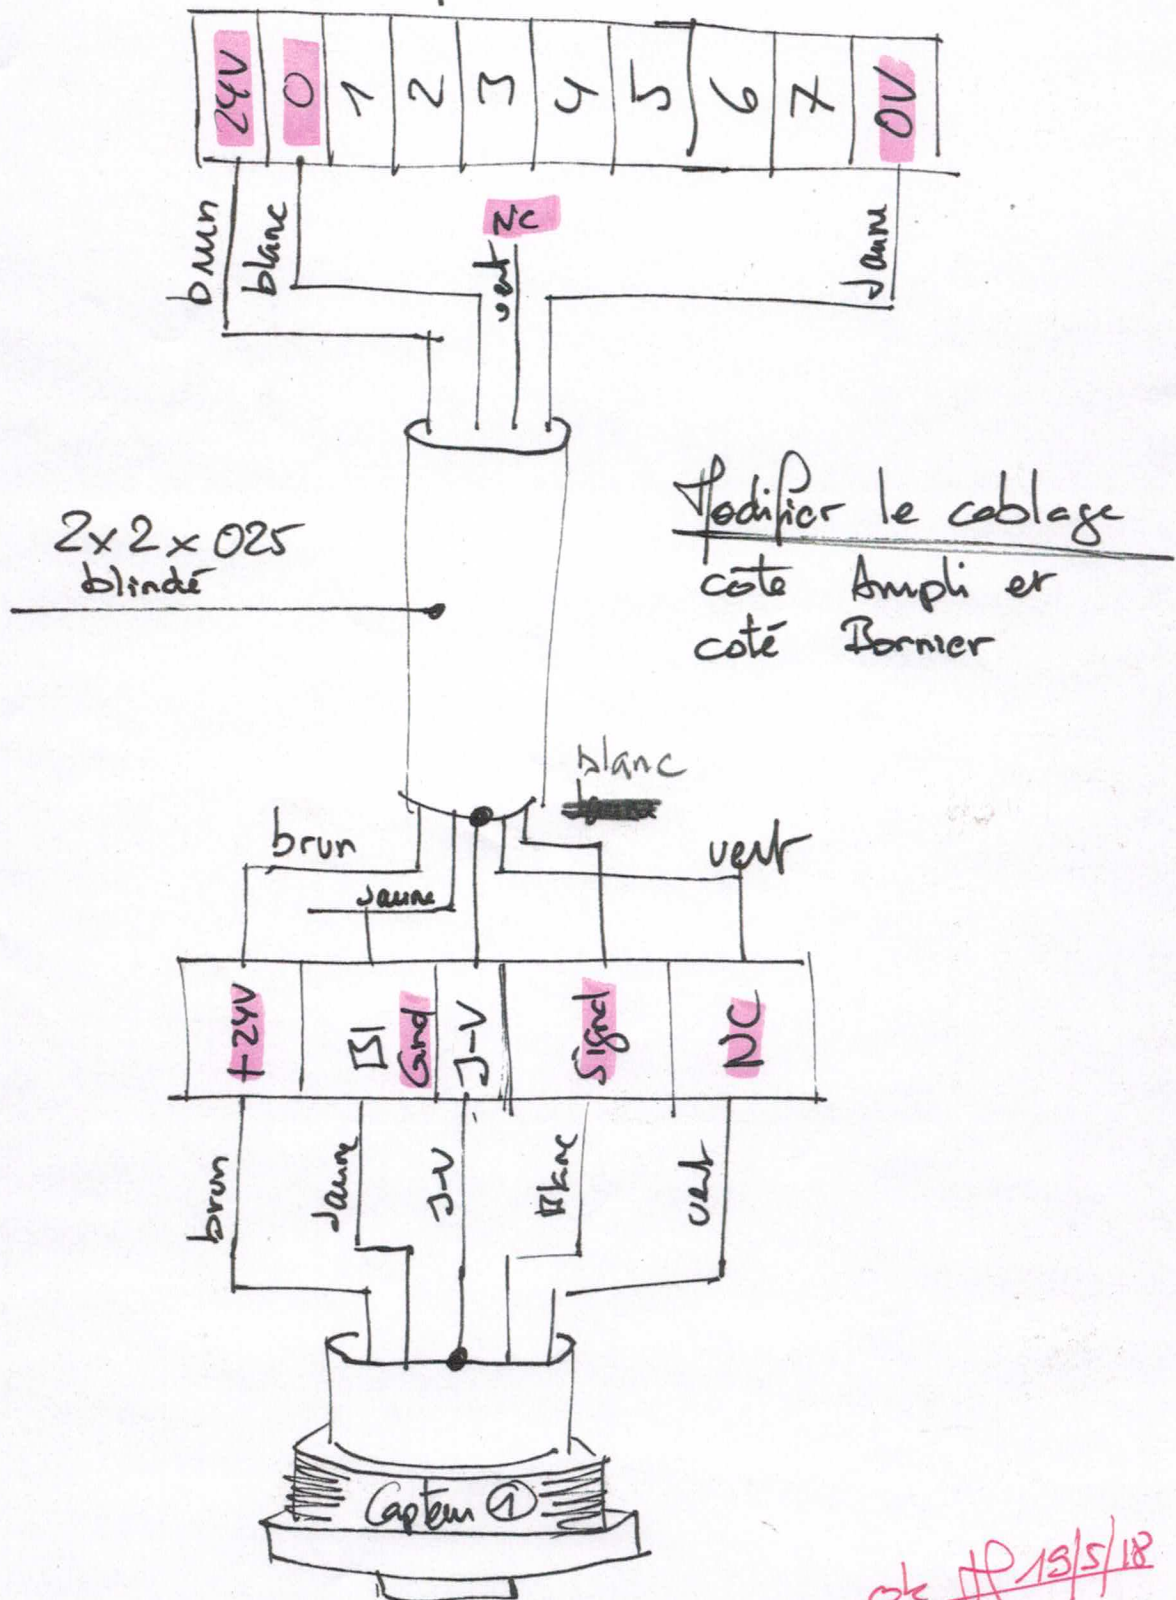 24V 0 1 2 3 4 5 6 7 0V
NC
brun blanc vert Jaune
2x2x025
blindé
Modifier le cablage
coté Ampli et
coté Bornier
blanc
brun
Jaune
vert
+24V Gnd J-V Signal NC
brun Jaune J-V Blanc vert
Capteur 1
ok 19/5/18